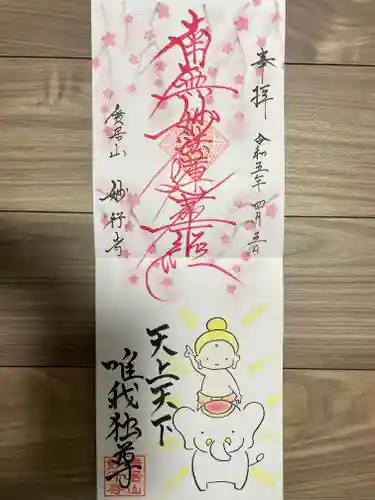 奉拝
令和五年四月五日
南無妙法蓮華経
廣昌山
妙行寺
天上天下
唯我独尊